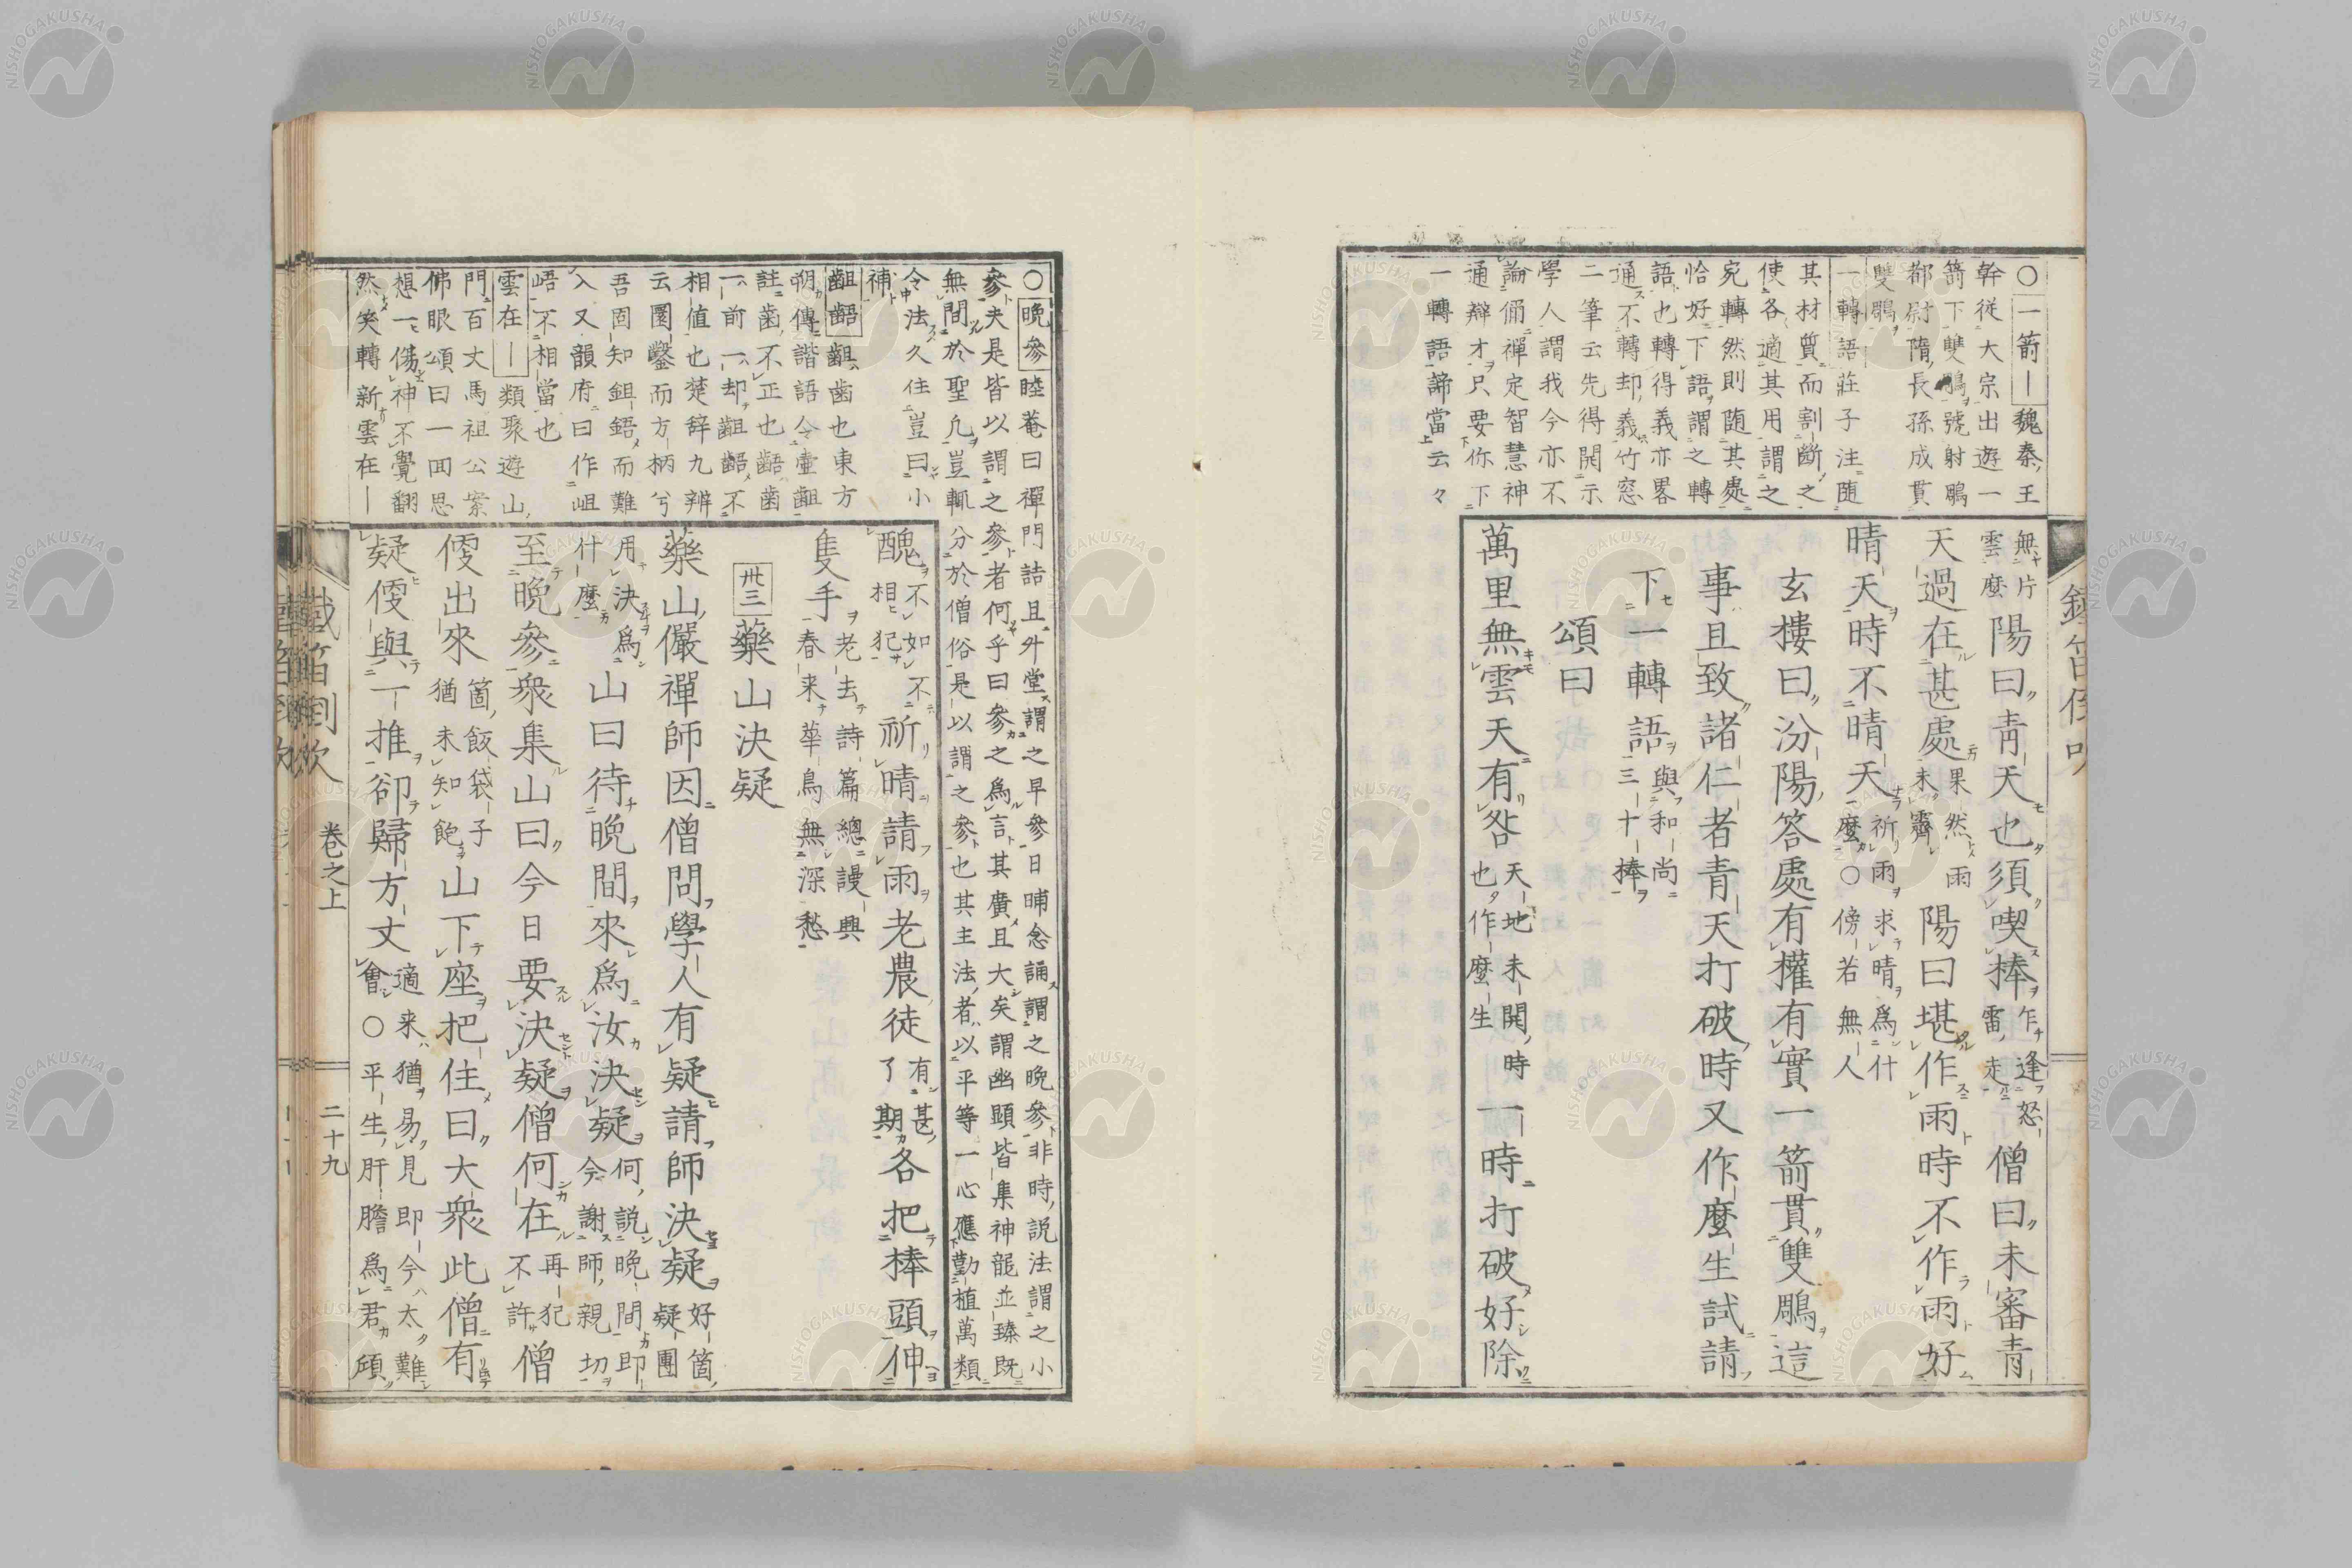 〇一箭｜魏秦王
幹從大宗出遊一
箭下雙鵰號射鵰
都尉隋長孫成貫
雙鵰
一轉語莊子注随
其材質而割斷之
使各適其用謂之
宛轉然則随其處
恰好下語謂之轉
語也轉得義亦畧
通不轉却義竹窓
二筆云先得開示
學人謂我今亦不
論你禪定智慧神
通辯才只要你下
一轉語諦當云々
無片雲麼陽曰青天也須喫棒乍逢怒雷走僧曰未審青
天過在甚處果然雨未霽陽曰堪作雨時不作雨好
晴天時不晴天祈雨求晴為什麼〇傍若無人
玄樓曰汾陽答處有權有實一箭貫雙鵰這
事且致諸仁者青天打破時又作麼生試請
下一轉語與和尚三十棒
頌曰
萬里無雲天有咎天地未開時也作麼生一時打破好除
〇晩參睦菴曰禪門詰且升堂謂之早參日晡念誦謂之晩參非時説法謂之小
參夫是皆以謂之參者何乎曰參之爲言其廣且大矣謂幽顯皆集神龍並臻既
無間於聖凢豈輒分於僧俗是以謂之參也其主法者以平等一心應勤植萬類
令法久住豈曰小
補
齟齬齟齒也東方
朔傳諧語令壷齟
註齒不正也齬齒
一前一却齟齬不
相値也楚辞九辨
云圜鑿而方柄兮
吾固知鉏鋙而難
入又韻府曰作岨
峿不相當也
雲在｜類聚遊山
門百丈馬祖公案
佛眼頌曰一囬思
想一傷神不覺翻
然笑轉新雲在｜
醜不如不相犯祈晴請雨老農徒有甚了期各把棒頭伸
隻手老去詩篇總謾興春来華鳥無深愁
卅三藥山決疑
藥山儼禪師因僧問學人有疑請師決疑好箇疑團
用決爲什麼山曰待晩間來爲汝決疑何説晩間即今謝師親切
至晩參衆集山曰今日要決疑僧何在再犯不許僧
便出來箇飯袋子猶未知飽山下座把住曰大衆此僧有
疑便與一推卻歸方丈適来猶易見即今太難會〇平生肝膽爲君傾
鐵笛倒吹
卷之上
二十九